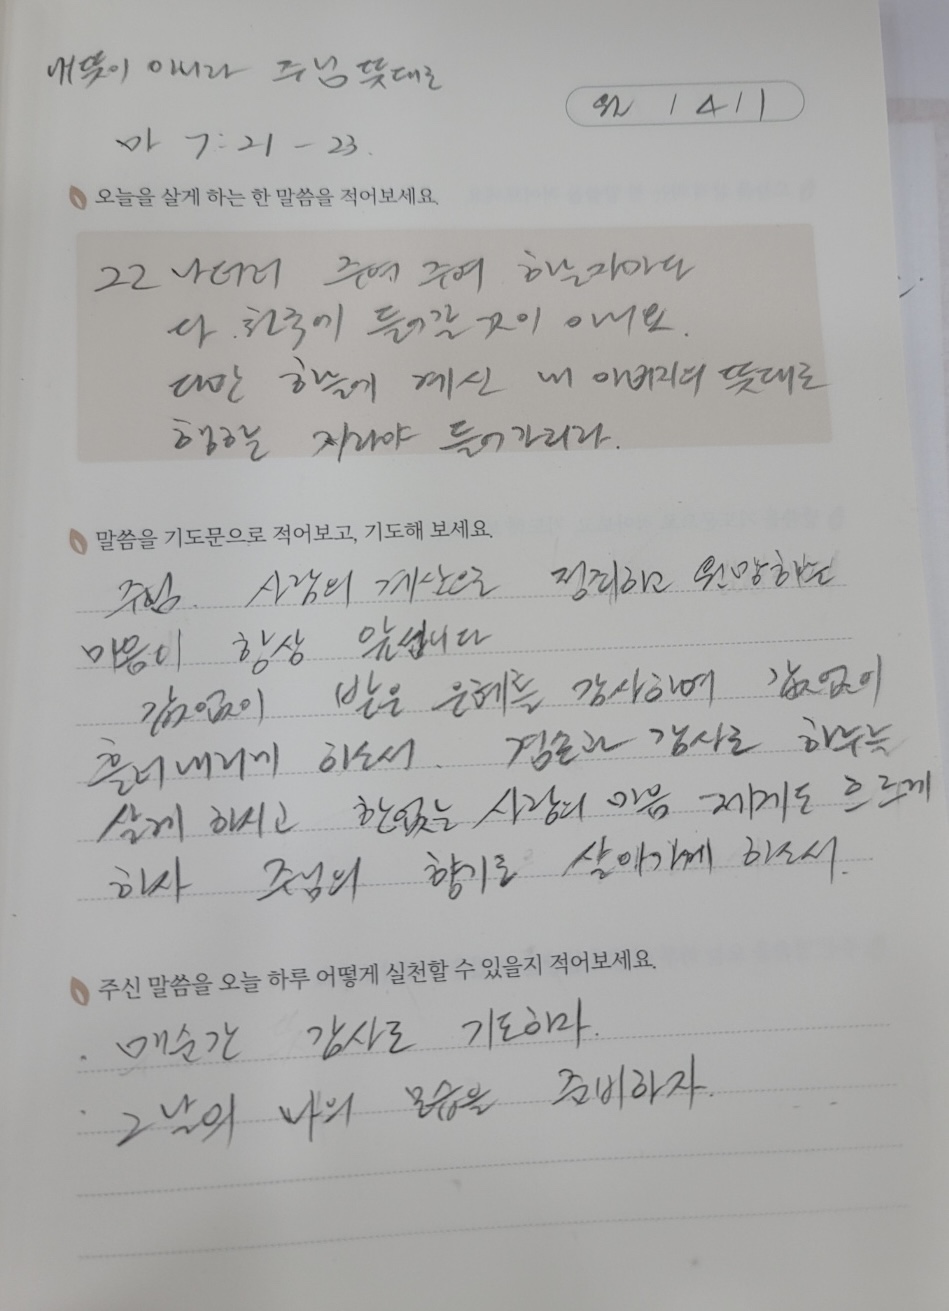 내뜻이 아니라 주님 뜻대로
141
마 7:21-23.
오늘을 살게 하는 한 말씀을 적어보세요.
22 나더러 주여 주여 하는자마다
다 천국에 들어갈 것이 아니요.
다만 하늘에 계신 내 아버지의 뜻대로
행하는 자라야 들어가리라.
말씀을 기도문으로 적어보고, 기도해 보세요.
주님. 사람의 계산으로 정죄하고 원망하는
마음이 항상 앞섭니다
값없이 받은 은혜를 감사하며 값없이
흘러내리게 하소서. 겸손과 감사로 하루를
살게 하시고 한없는 사랑의 마음 제게도 흐르게
하사 주님의 향기로 살아가게 하소서.
주신 말씀을 오늘 하루 어떻게 실천할 수 있을지 적어보세요.
· 매순간 감사로 기도하자.
· 그날의 나의 모습을 준비하자.